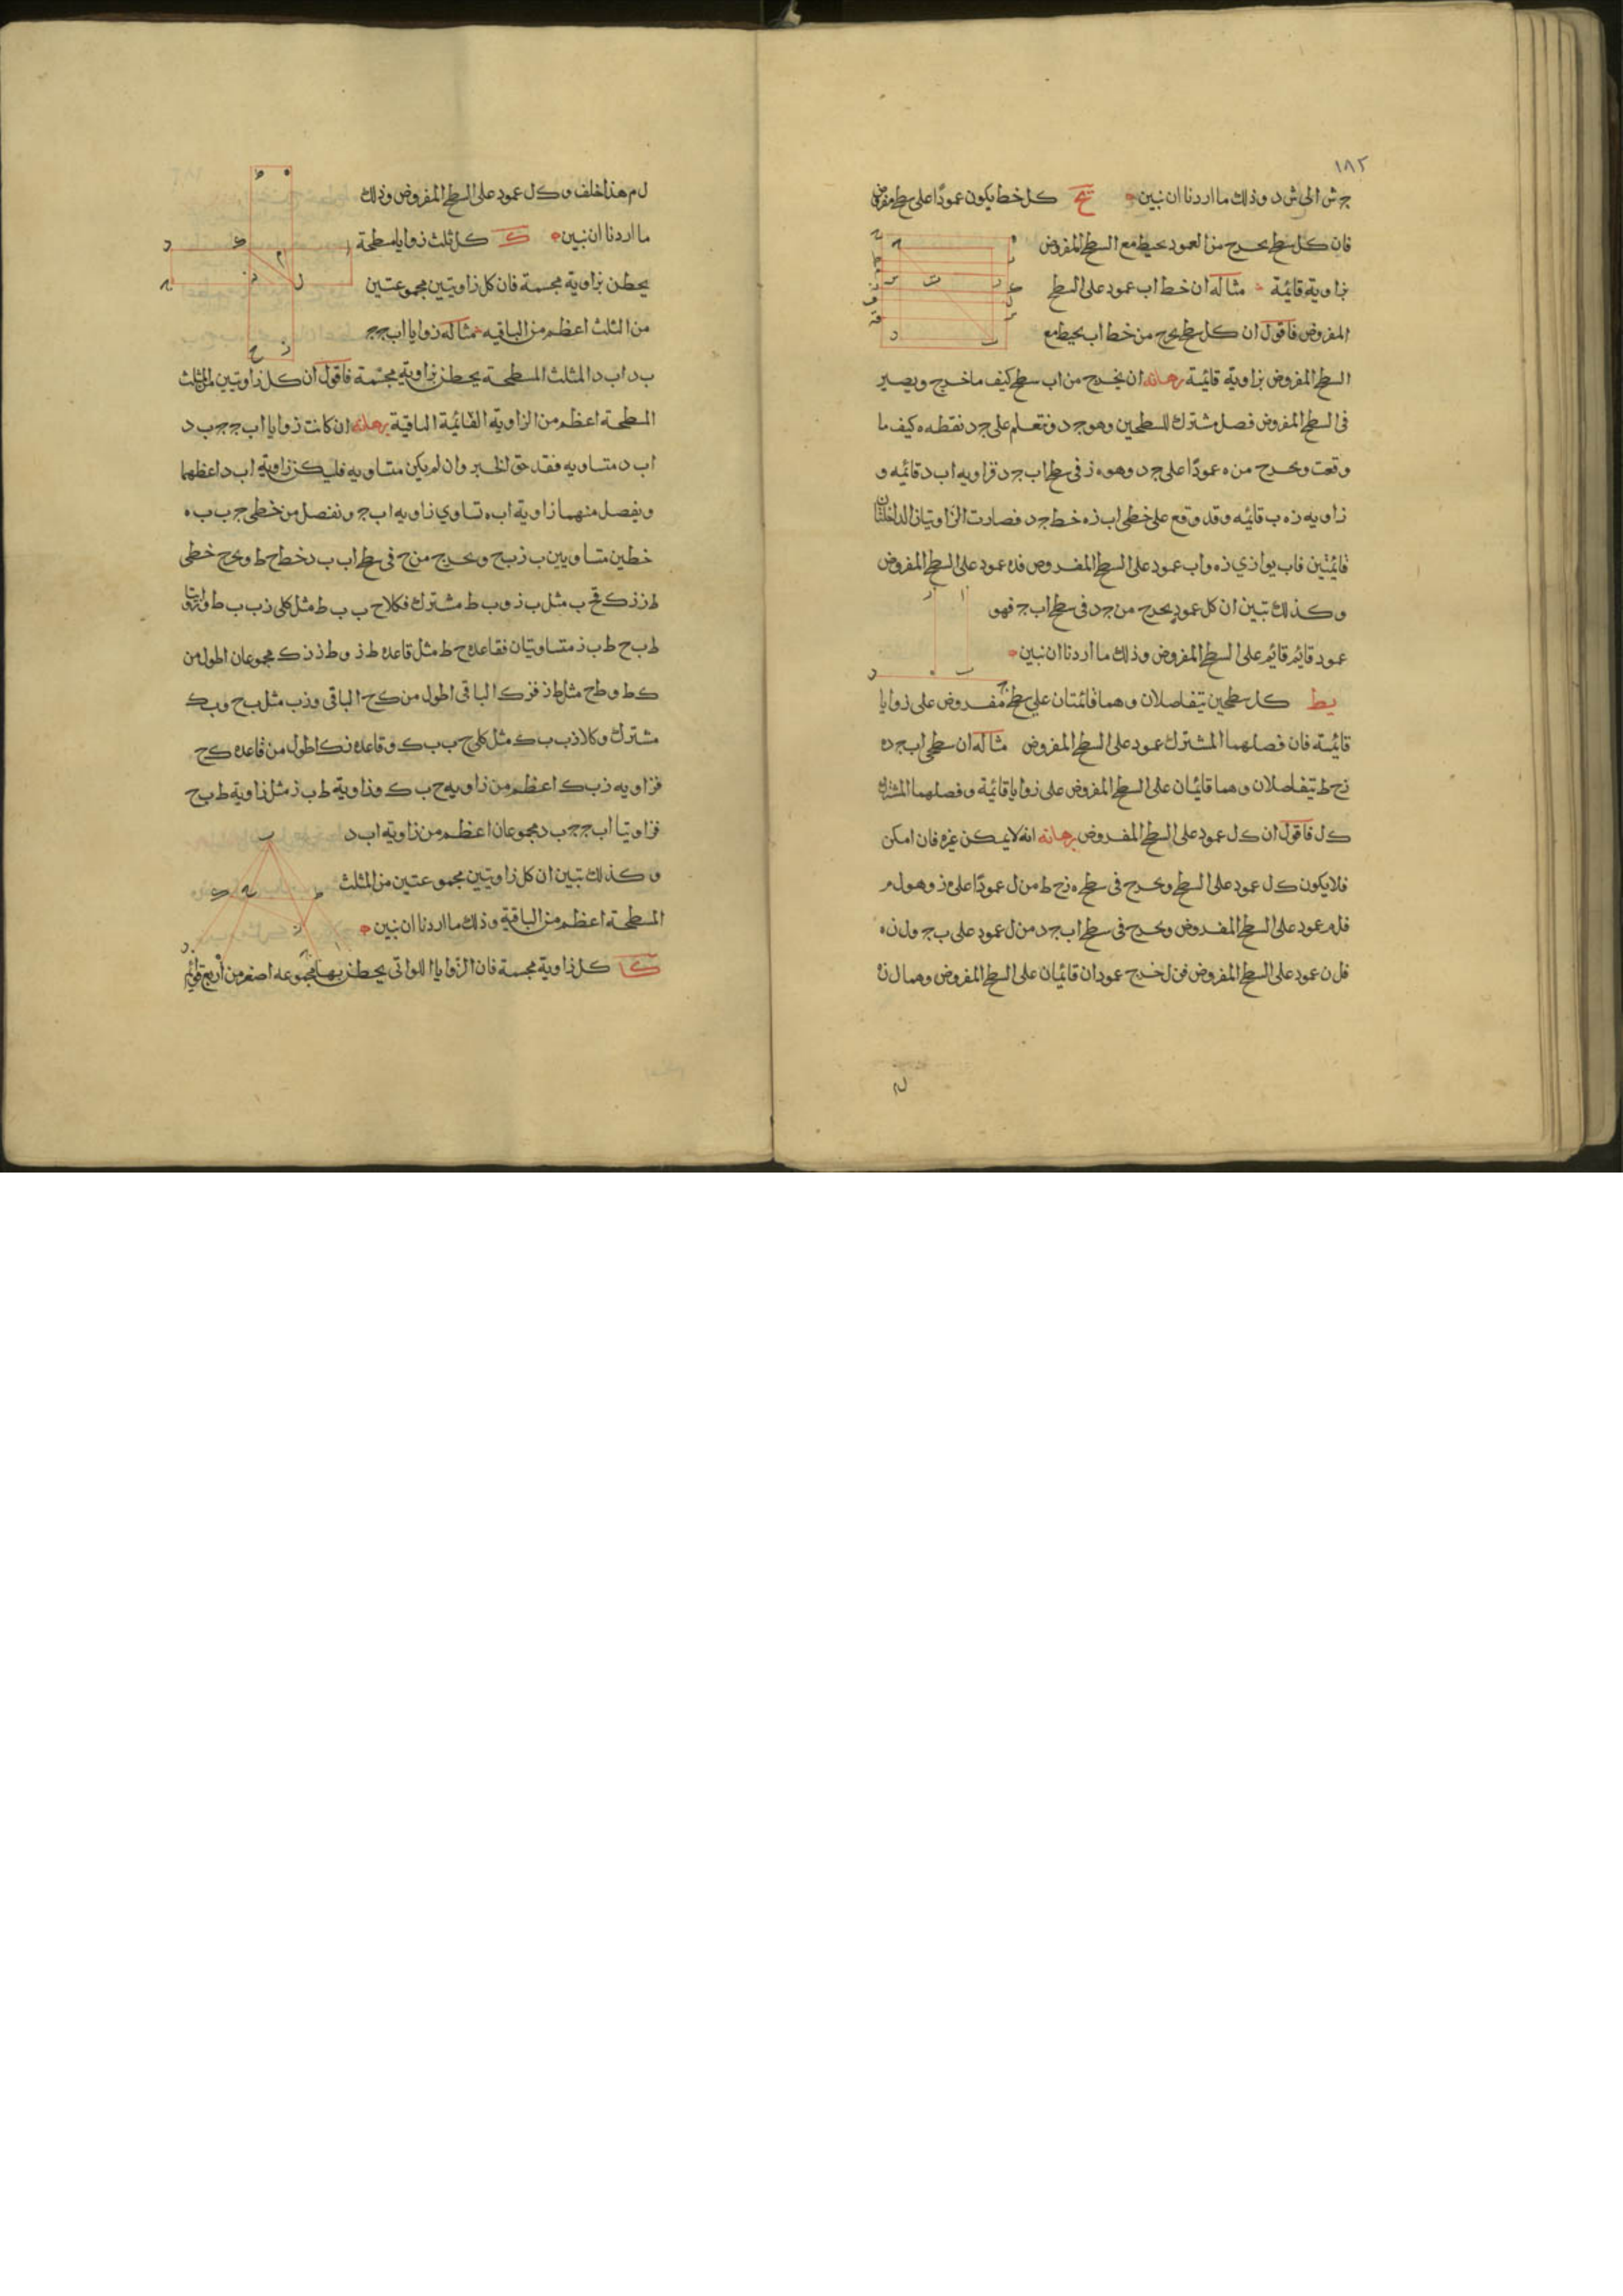 ١٨٢
ج ش الى ش د وذلك ما اردنا ان نبين يح كل خط يكون عمودا على سطح مفروض
فان كل سطح يخرج من العمود يحيط مع السطح المفروض
بزاوية قائمة مثاله ان خط اب عمود على السطح
المفروض فاقول ان كل سطح يخرج من خط اب يحيط مع
السطح المفروض بزاوية قائمة برهانه ان يخرج من اب سطح كيف ما خرج ويصير
فى السطح المفروض فصل مشترك للسطحين وهو ج د ونتعلم على ج د نقطه ه كيف ما
وقعت ونخرج من ه عمودا على ج د وهو ه ز فى سطح اب ج د فزاويه اب د قائمه و
زاويه ز ه ب قائمه وقد وقع على خطى اب ز ه خط ج د فصارت الزاويتان الداخلتان
قائمتين فاب يوازي ز ه واب عمود على السطح المفروض فزه عمود على السطح المفروض
وكذلك تبين ان كل عمود يخرج من ج د فى سطح اب ج فهو
عمود قايم قايم على السطح المفروض وذلك ما اردنا ان نبين
يط كل سطحين يتفاصلان وهما قائمتان على سطح مفروض على زوايا
قائمة فان فصلهما المشترك عمود على السطح المفروض مثاله ان سطحى اب ج د ه
ز ح ط يتفاصلان وهما قايمان على السطح المفروض على زوايا قائمة وفصلهما المشترك
ك ل فاقول ان ك ل عمود على السطح المفروض برهانه انه لا يمكن غيره فان امكن
فلا يكون ك ل عمود على السطح ونخرج فى سطح ه ز ح ط من ل عمودا على ه ز وهو ل م
فل م عمود على السطح المفروض ونخرج فى سطح اب ج د من ل عمود على ب ج ول ن ه
فل ن عمود على السطح المفروض فمن ل خرج عمودان قائمان على السطح المفروض وهما ل ن
ل م هذا خلف وك ل عمود على السطح المفروض وذلك
ما اردنا ان نبين ك كل ثلث زوايا مسطحة
يحطن بزاوية مجسمة فان كل زاويتين مجموعتين
من الثلث اعظم من الباقيه مثاله زوايا اب ج ج
ب د اب د المثلث المسطحة يحطن بزاوية مجسمة فاقول ان كل زاويتين من المثلث
المسطحة اعظم من الزاوية القائمة الباقية برهانه ان كانت زوايا اب ج ج ب د
اب د متساويه فقد حق الخبر وان لم يكن متساويه فليكن زاوية اب د اعظمها
ونفصل منهما زاوية اب ه تساوي زاويه اب ج ونفصل من خطى ج ب ب ه
خطين متساويين ب ز ب ح ونخرج من ح فى سطح اب ب د خط ح ط ونخرج خطى
ط ز ز ك فح ب مثل ب ز وب ط مشترك فكلا ح ب ب ط مثل كلى ز ب ب ط وزاويتا
ط ب ح ط ب ز متساويتان فقاعده ح ط مثل قاعده ط ز وط ز ز ك مجموعان اطول من
ك ط وط ح مثل ط ز فز ك الباقى اطول من ك ح الباقى وز ب مثل ب ح وب ك
مشترك وكلا ز ب ب ك مثل كلى ح ب ب ك وقاعدة ز ك اطول من قاعده ك ح
فزاويه ز ب ك اعظم من زاويه ح ب ك وزاوية ط ب ز مثل زاوية ط ب ح
فزاويتا اب ج ج ب د مجموعان اعظم من زاوية اب د
وكذلك تبين ان كل زاويتين مجموعتين من المثلث
المسطحة اعظم من الباقية وذلك ما اردنا ان نبين
كا كل زاوية مجسمة فان الزوايا اللواتى يحطن بها مجموعه اصغر من اربع قوائم